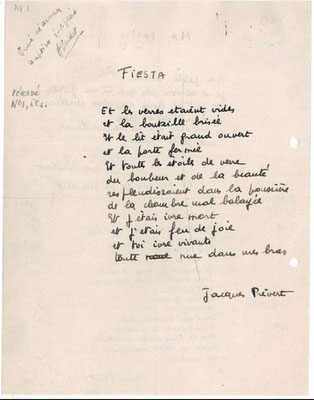 M.1
FIESTA
réservé
Et les verres étaient vides
et la bouteille brisée
Et le lit était grand ouvert
et la porte fermée
Et toute les étoiles de verre
du bonheur et de la beauté
resplendissaient dans la poussière
de la chambre mal balayée
Et j'étais ivre mort
et j'étais feu de joie
et toi ivre vivante
toute nue dans mes bras
Jacques Prévert